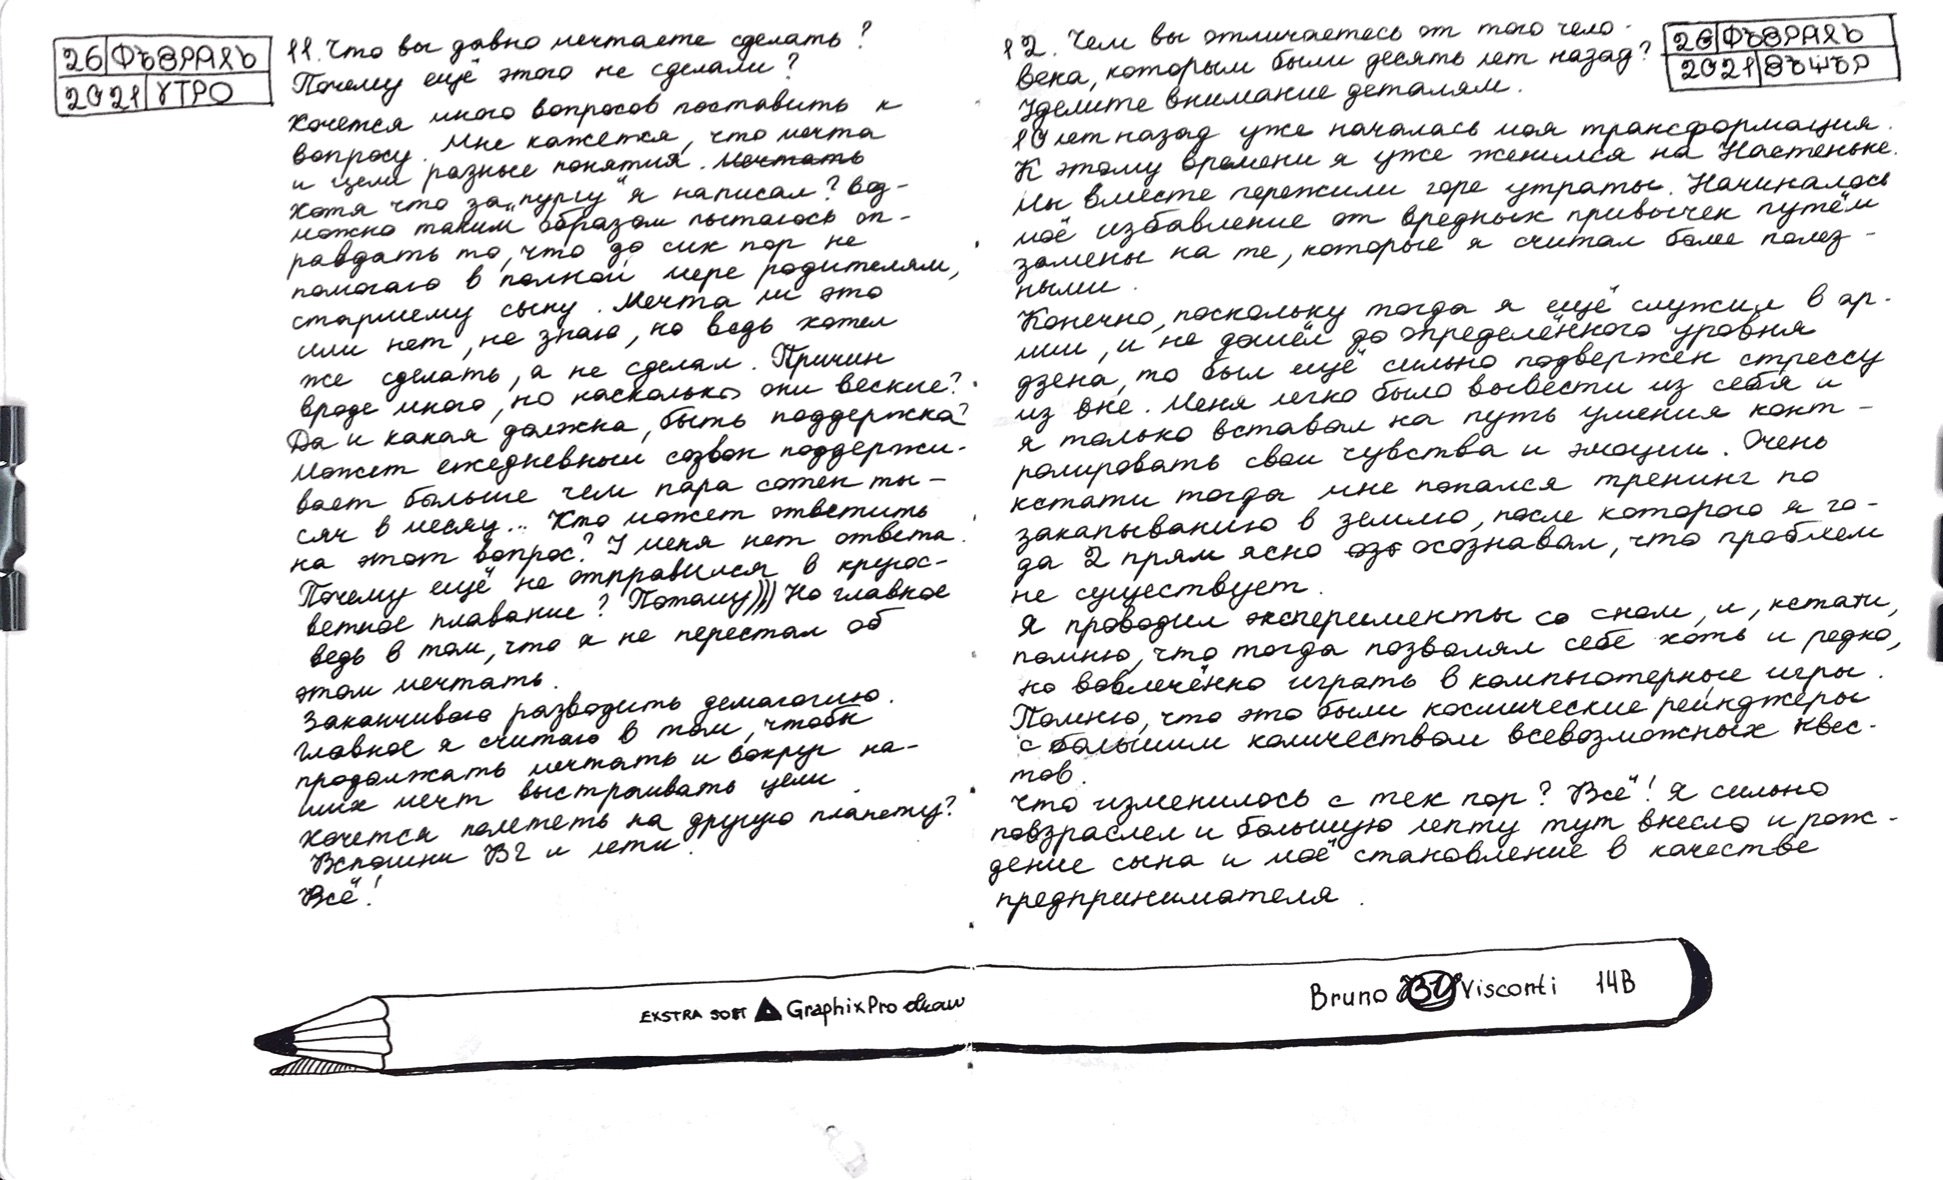 26 ФЪВРАЛЬ
2021 УТРО
11. Что вы давно мечтаете сделать?
Почему ещё этого не сделали?
Хочется много вопросов поставить к
вопросу. Мне кажется, что мечта
и цели разные понятия. Мечтать
Хотя что за „пургу" я написал? Воз-
можно таким образом пытаюсь оп-
равдать то, что до сих пор не
помогаю в полной мере родителям,
старшему сыну. Мечта ли это
или нет, не знаю, но ведь хотел
же сделать, а не сделал. Причин
вроде много, но насколько они веские?
Да и какая должна быть поддержка?
Может ежедневный созвон поддержи-
вает больше чем пара сотен ты-
сяч в месяц... Кто может ответить
на этот вопрос? У меня нет ответа.
Почему ещё не отправился в кругос-
ветное плавание? Потому))) Но главное
ведь в том, что я не перестал об
этом мечтать.
Заканчиваю разводить демагогию.
Главное я считаю в том, чтобы
продолжать мечтать и вокруг на-
ших мечт выстраивать цели.
Хочется полететь на другую планету?
Вспомни В2 и лети.
Всё!
26 ФЪВРАЛЬ
2021 ВЪЧЪР
12. Чем вы отличаетесь от того чело-
века, которым были десять лет назад?
Уделите внимание деталям.
10 лет назад уже началась моя трансформация.
К этому времени я уже женился на Настеньке.
Мы вместе пережили горе утраты. Начиналось
моё избавление от вредных привычек путём
замены на те, которые я считал более полез-
ными.
Конечно, поскольку тогда я ещё служил в ар-
мии, и не дошёл до определённого уровня
дзена, то был ещё сильно подвержен стрессу
из вне. Меня легко было вывести из себя и
я только вставал на путь умения конт-
ролировать свои чувства и эмоции. Очень
кстати тогда мне попался тренинг по
закапыванию в землю, после которого я го-
да 2 прям ясно озо осознавал, что проблем
не существует.
Я проводил эксперименты со сном, и, кстати,
помню, что тогда позволял себе хоть и редко,
но вовлечённо играть в компьютерные игры.
Помню, что это были космические рейнджеры
с большим количеством всевозможных квес-
тов.
Что изменилось с тех пор? Всё! Я сильно
повзрослел и большую лепту тут внесло и рож-
дение сына и моё становление в качестве
предпринимателя.
EKSTRA SOFT GraphixPro draw
Bruno BV Visconti 14B